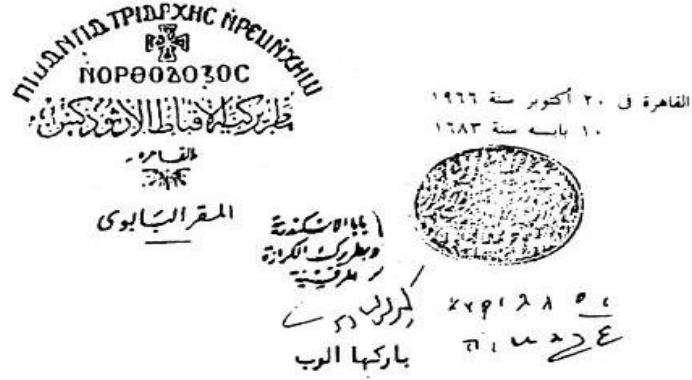 ⲠⲒⲘⲀⲚⲠⲀⲦⲢⲒⲀⲢⲬⲎⲤ ⲚⲢⲈⲘⲚⲬⲎⲘⲒ
ⲚⲞⲢⲐⲞⲆⲞⲜⲞⲤ
بطريركية الأقباط الأرثوذكس
بالقاهرة
المقر البابوى
القاهرة فى ٢٠ أكتوبر سنة ١٩٦٦
١٠ بابه سنة ١٦٨٣
بابا الإسكندرية
وبطريرك الكرازة
المرقسية
كيرلس السادس
باركها الرب